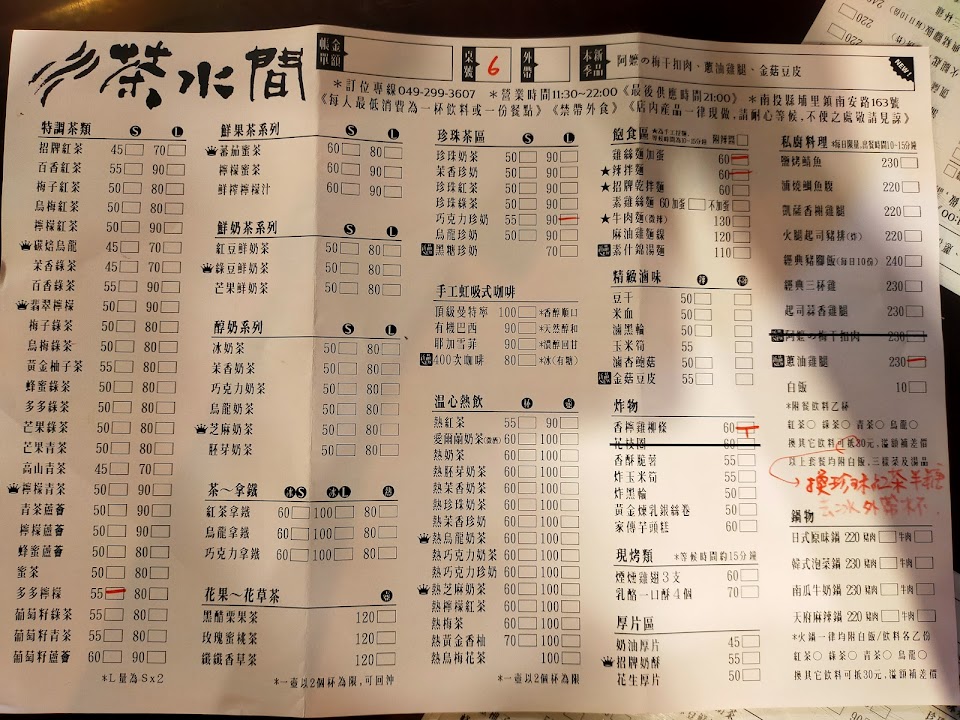 茶水間
帳單金額
桌號 6 外帶
本季新品 阿嬤の梅干扣肉、蔥油雞腿、金菇豆皮 NEW!
＊訂位專線049-299-3607 ＊營業時間11:30~22:00《最後供應時間21:00》 ＊南投縣埔里鎮南安路163號
《每人最低消費為一杯飲料或一份餐點》《禁帶外食》《店內產品一律現做,請耐心等候,不便之處敬請見諒》
特調茶類 S L
招牌紅茶 45 70
百香紅茶 55 90
梅子紅茶 50 80
烏梅紅茶 50 80
檸檬紅茶 50 90
碳焙烏龍 45 70
茉香綠茶 45 70
百香綠茶 55 90
翡翠檸檬 50 90
梅子綠茶 50 80
烏梅綠茶 50 80
黃金柚子茶 55 80
蜂蜜綠茶 50 80
多多綠茶 50 80
芒果綠茶 50 80
芒果青茶 50 80
高山青茶 45 70
檸檬青茶 50 90
青茶蘆薈 50 90
檸檬蘆薈 50 90
蜂蜜蘆薈 50 80
蜜茶 50 80
多多檸檬 55 80
葡萄籽綠茶 55 80
葡萄籽青茶 55 80
葡萄籽蘆薈 60 90
＊L量為Sx2
鮮果茶系列 S L
蕃茄蜜茶 60 80
檸檬蜜茶 60 80
鮮榨檸檬汁 60 80
鮮奶茶系列 S L
紅豆鮮奶茶 50 80
綠豆鮮奶茶 50 80
芒果鮮奶茶 50 80
醇奶系列 S L
冰奶茶 50 80
茉香奶茶 50 80
巧克力奶茶 50 80
烏龍奶茶 50 80
芝麻奶茶 50 80
胚芽奶茶 50 80
茶～拿鐵 冰S 冰L 熱
紅茶拿鐵 60 100 80
烏龍拿鐵 60 100 80
巧克力拿鐵 60 100 80
花果～花草茶 壺
黑醋栗果茶 120
玫瑰蜜桃茶 120
纖纖香草茶 120
＊一壺以2個杯為限,可回沖
珍珠茶區 S L
珍珠奶茶 50 90
茉香珍奶 50 90
珍珠紅茶 50 90
珍珠綠茶 50 90
巧克力珍奶 55 90
烏龍珍奶 50 90
黑糖珍奶 70
手工虹吸式咖啡
頂級曼特寧 100 ＊香醇順口
有機巴西 90 ＊天然醇和
耶加雪菲 90 ＊濃醇回甘
400次咖啡 80 ＊冰(有糖)
溫心熱飲 杯 壺
熱紅茶 55 100
愛爾蘭奶茶(微酒) 60 100
熱奶茶 60 100
熱胚芽奶茶 60 100
熱茉香奶茶 60 100
熱珍珠奶茶 60 100
熱茉香珍奶 60 100
熱烏龍奶茶 60 100
熱巧克力奶茶 60 100
熱巧克力珍奶 60 100
熱芝麻奶茶 60 100
熱檸檬紅茶 60 100
熱梅茶 60 100
熱黃金香柚 70 100
熱烏梅花茶 100
＊一壺以2個杯為限
飽食區 附辣醬
雞絲麵加蛋 60
★辣拌麵 60
★招牌乾拌麵 60
素雞絲麵 60 加蛋 不加蛋
★牛肉麵(微辣) 130
麻油雞麵線 120
素什錦湯麵 110
精緻滷味
豆干 50
米血 50
滷黑輪 50
玉米筍 55
滷杏鮑菇 50
金菇豆皮 55
炸物
香檸雞柳條 60
花枝圈
香酥脆薯 55
炸玉米筍 55
炸黑輪 50
黃金煉乳銀絲卷 50
家傳芋頭糕 60
現烤類 ＊等候時間約15分鐘
煙燻雞翅3支 60
乳酪一口酥4個 70
厚片區
奶油厚片 45
招牌奶酥 55
花生厚片 50
私廚料理 ＊每日限量,出餐時間10-15分鐘
鹽烤鯖魚 230
滷燒鯛魚腹 220
凱薩香柑雞腿 220
火腿起司豬排(炸) 220
經典豬腳飯(每日10份) 240
經典三杯雞 230
起司蒜香雞腿 230
阿嬤の梅干扣肉 230
蔥油雞腿 230
白飯 10
＊附餐飲料乙杯
紅茶○ 綠茶○ 青茶○ 烏龍○
換其它飲料可抵30元,溢額補差價
以上套餐均附白飯,三樣菜及湯品
換珍珠紅茶半糖
去冰 外帶杯
鍋物
日式原味鍋 220 豬肉 牛肉
韓式泡菜鍋 230 豬肉 牛肉
南瓜牛奶鍋 230 豬肉 牛肉
天府麻辣鍋 220 豬肉 牛肉
＊火鍋一律均附白飯/飲料各乙份
紅茶○ 綠茶○ 青茶○ 烏龍○
換其它飲料可抵30元,溢額補差價